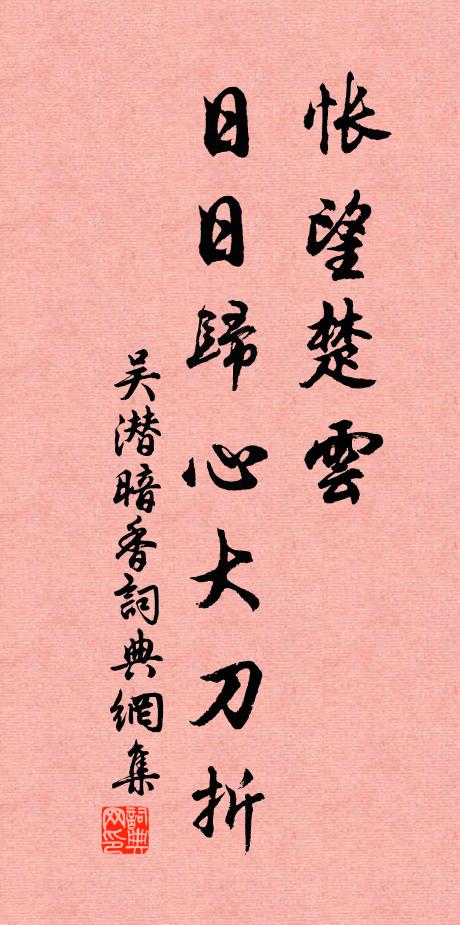 悵望楚雲
日日歸心大刀折
吴潜暗香詞典網集
詞典网印